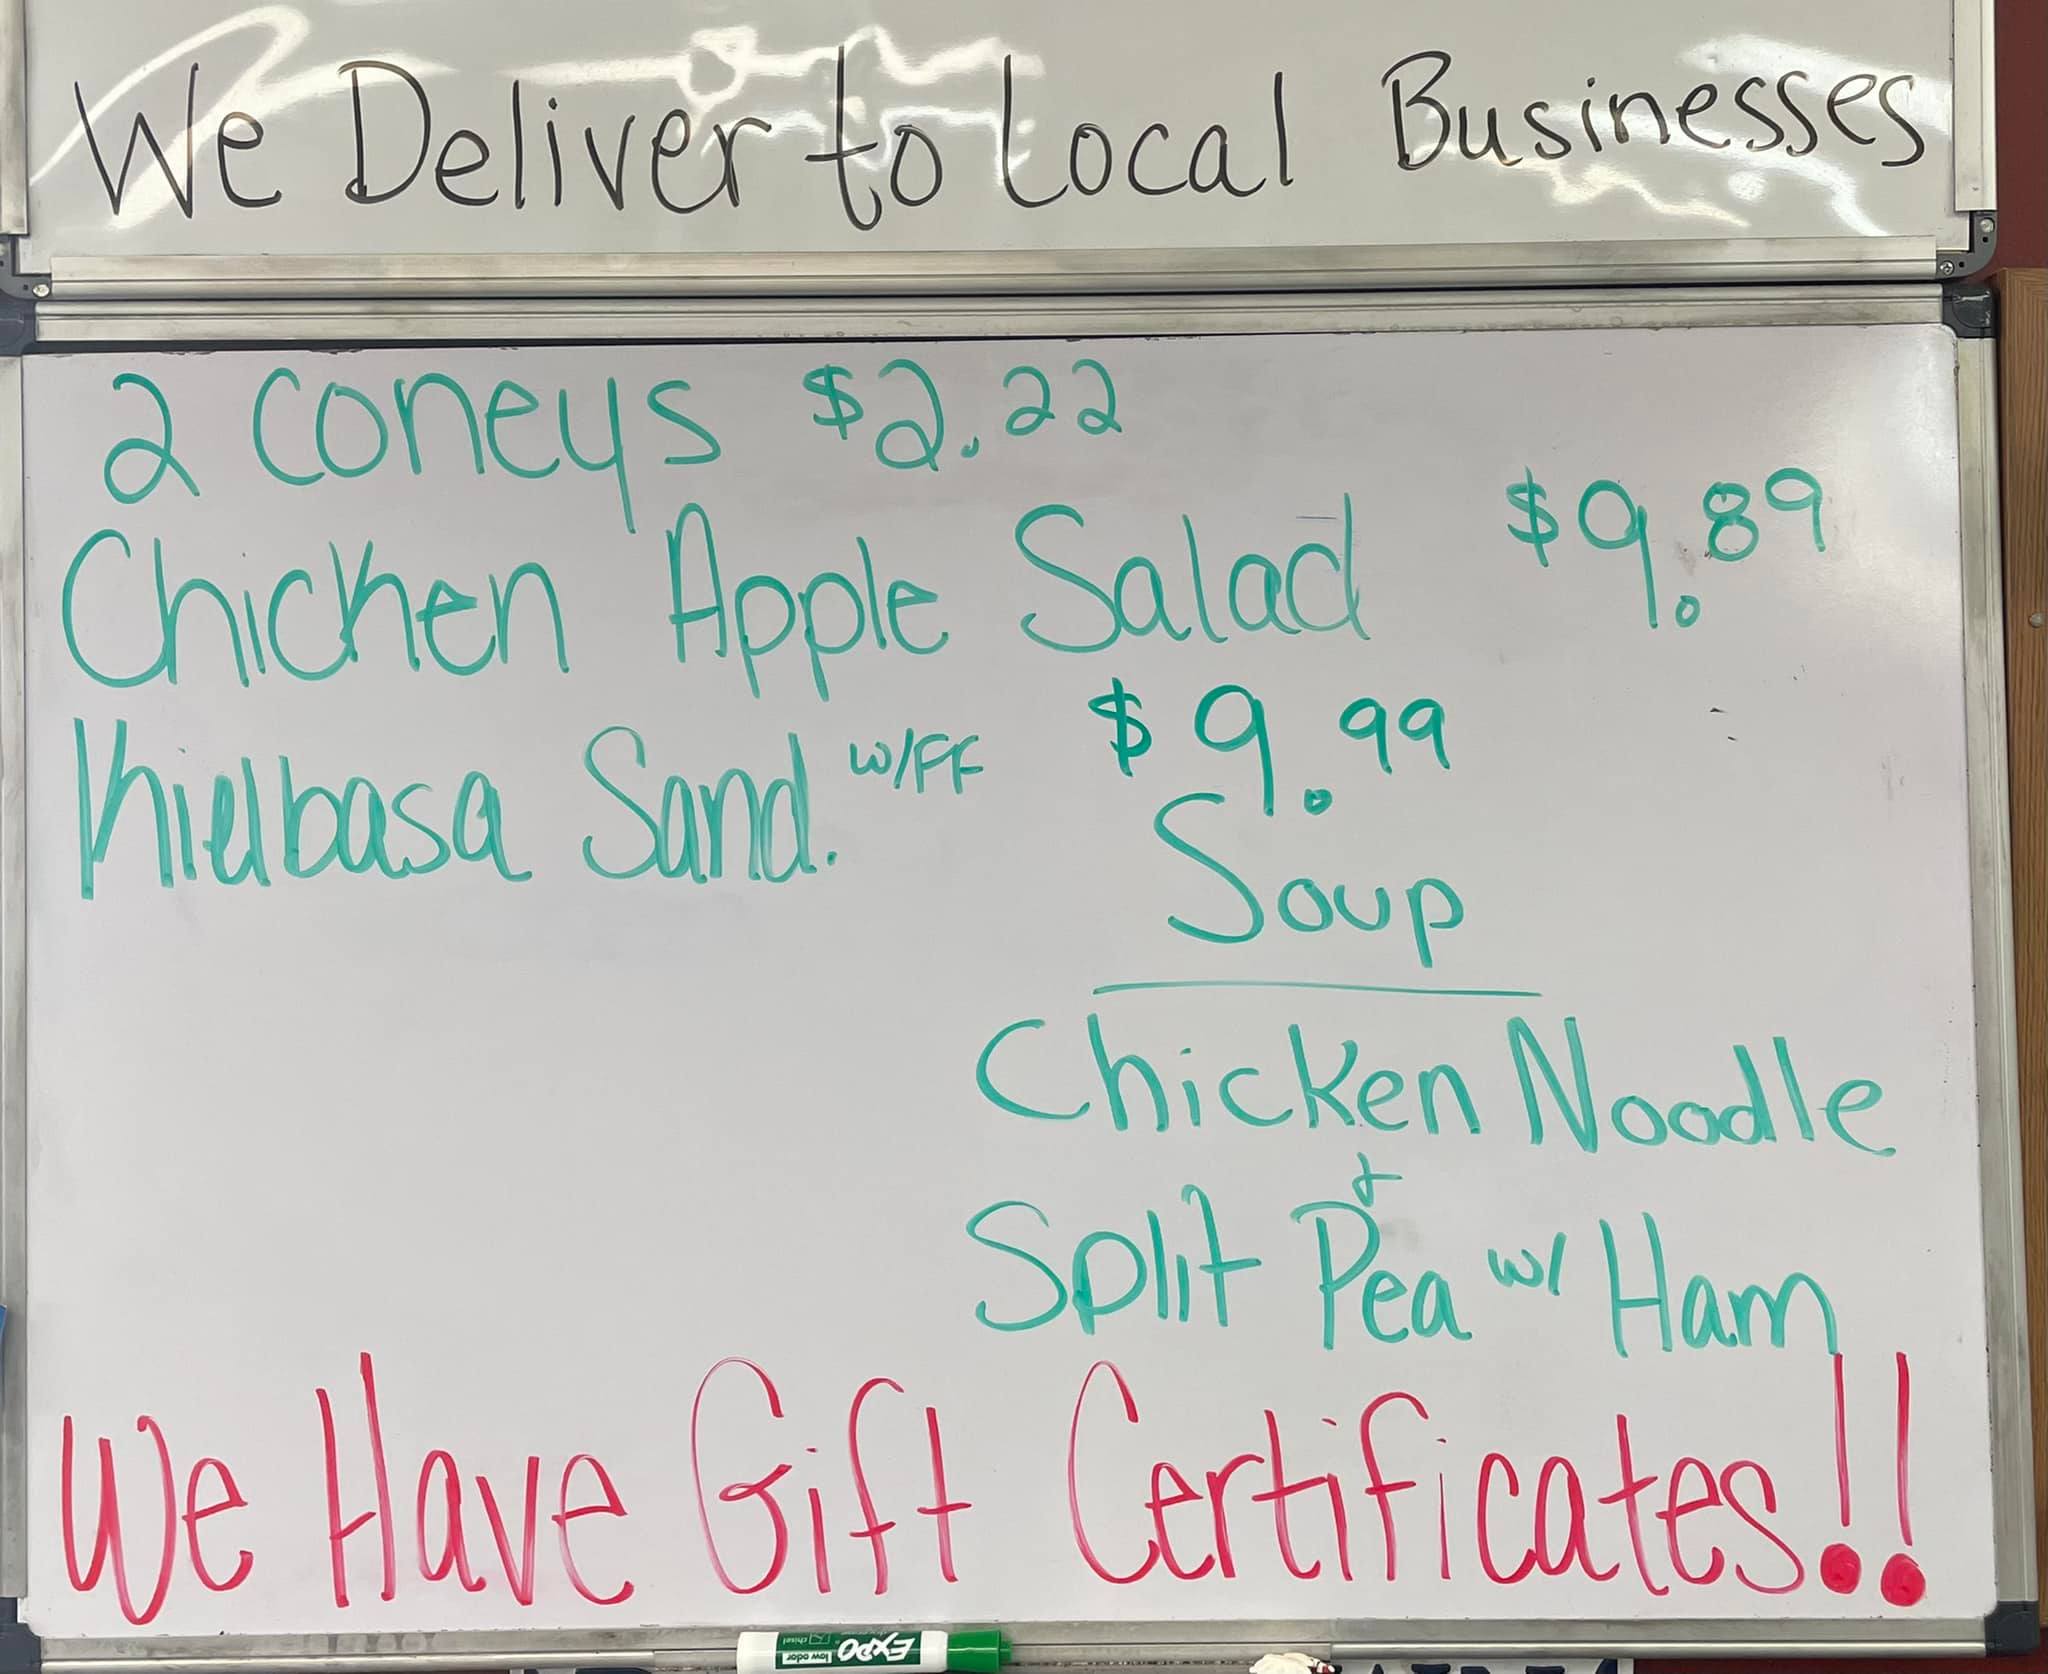 We Deliver to Local Businesses
2 Coneys $2.22
Chicken Apple Salad $9.89
Kielbasa Sand. w/FF $9.99
Soup
Chicken Noodle
+
Split Pea w/ Ham
We Have Gift Certificates!!
EXPO low odor chisel